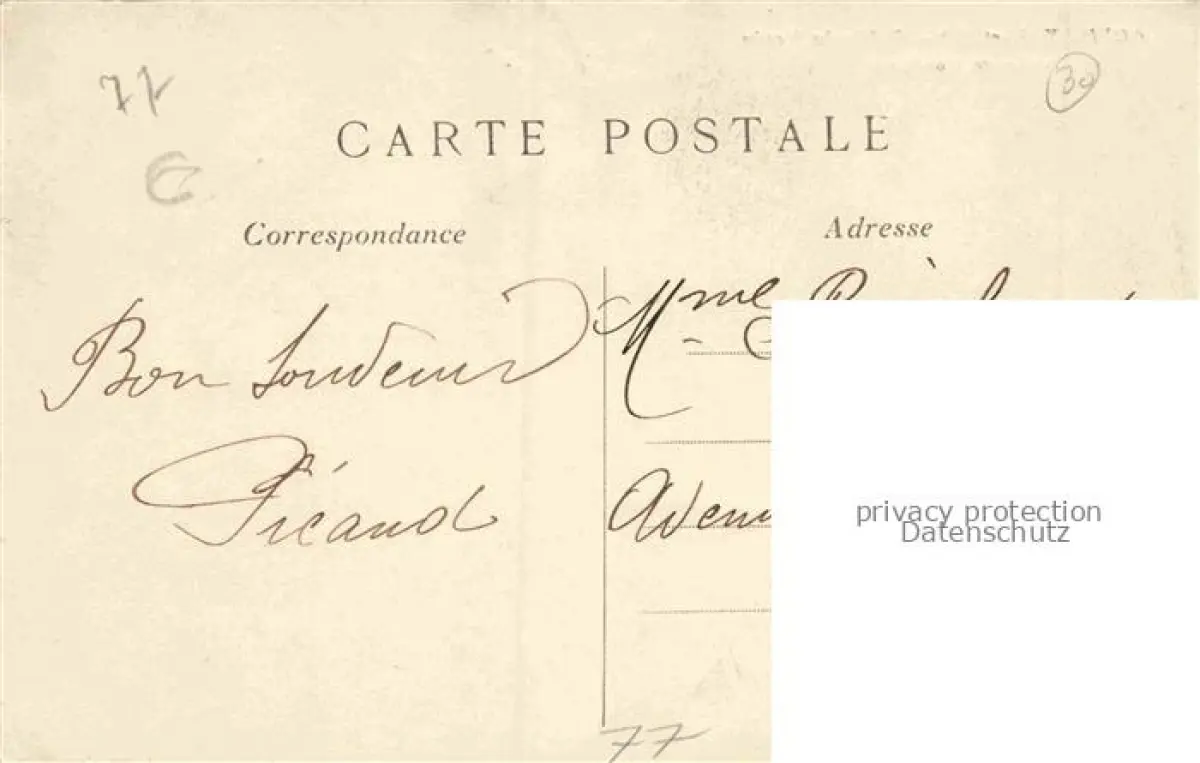 77
30
CARTE POSTALE
Correspondance
Adresse
Bon Souvenir
Picand
Mme
privacy protection
Datenschutz
77